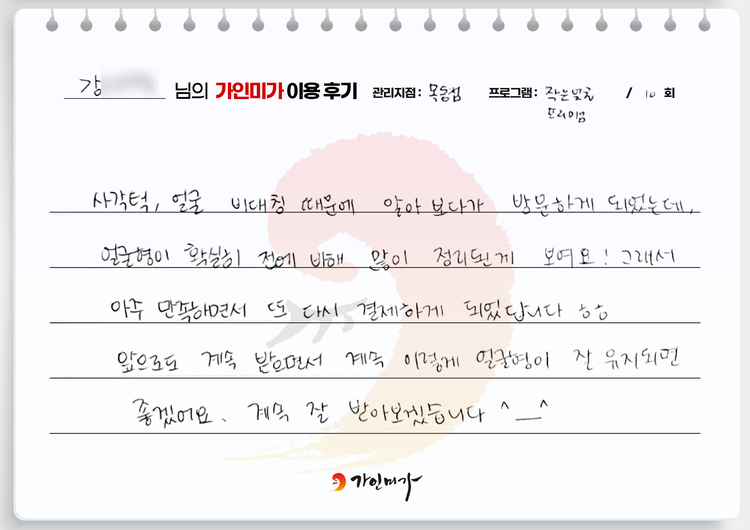 강 님의 가인미가 이용 후기 관리지점 : 목동점 프로그램 : 작은얼굴 / 10 회
프리미엄
사각턱, 얼굴 비대칭 때문에 알아 보다가 방문하게 되었는데,
얼굴형이 확실히 전에 비해 많이 정리된게 보여요! 그래서
아주 만족하면서 또 다시 결제하게 되었답니다 ㅎㅎ
앞으로도 계속 받으면서 계속 이렇게 얼굴형이 잘 유지되면
좋겠어요. 계속 잘 받아보겠습니다 ^__^
가인미가